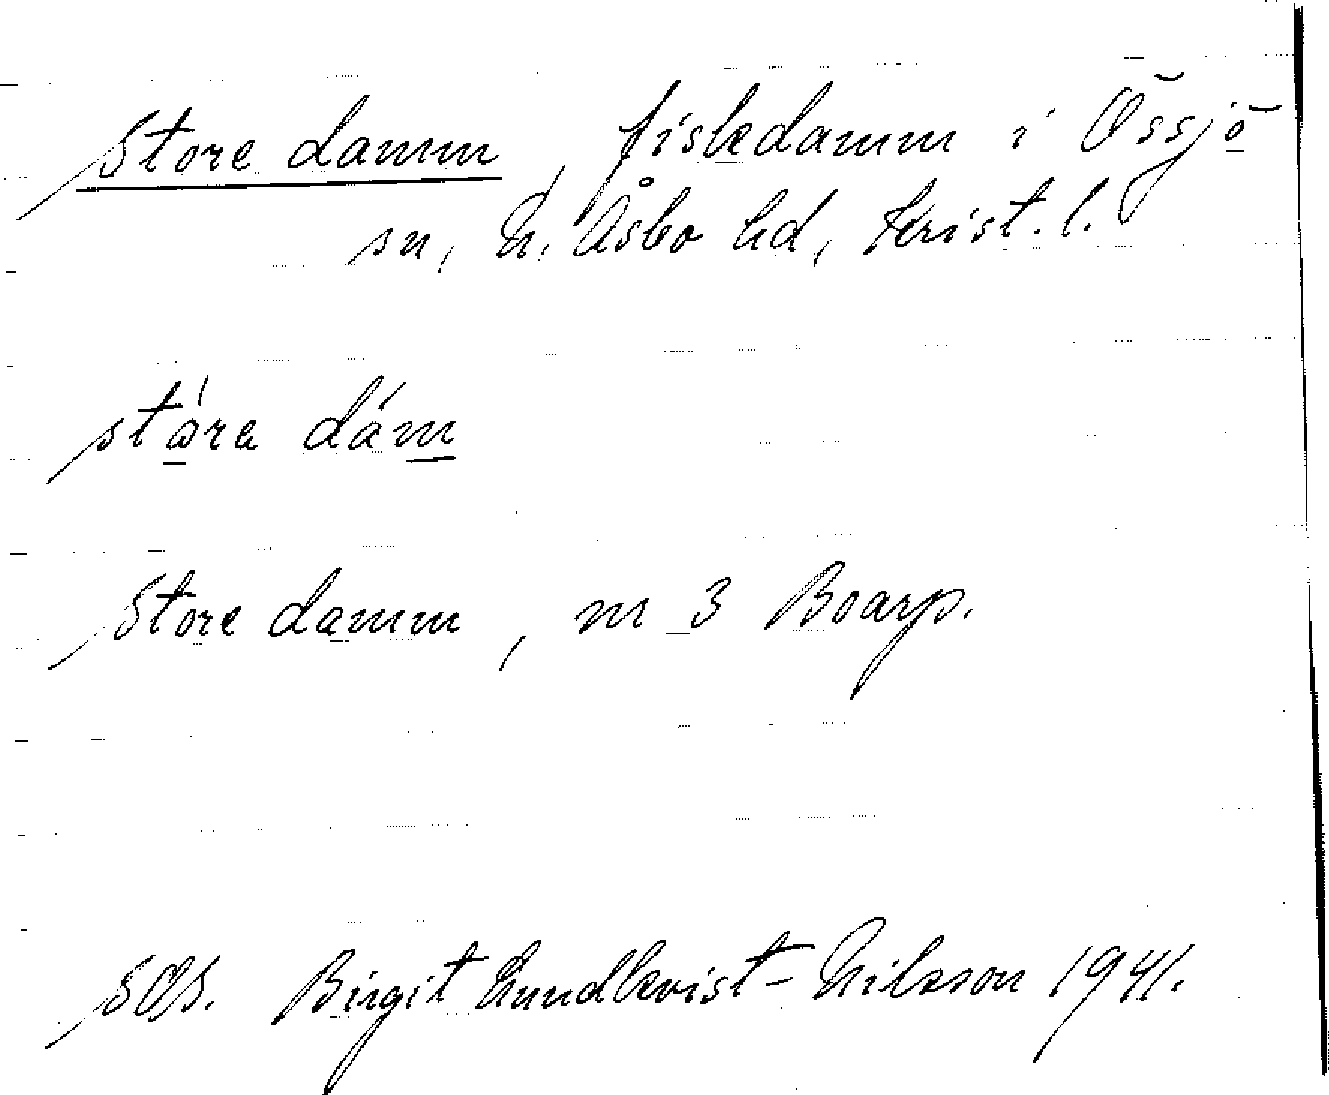 Store damm, fiskedamm i Össjö
sn, N. Åsbo hd, Krist. l.
stára dám
Store damm, m 3 Boarp.
SOS. Birgit Lundkvist-Nilsson 1941.